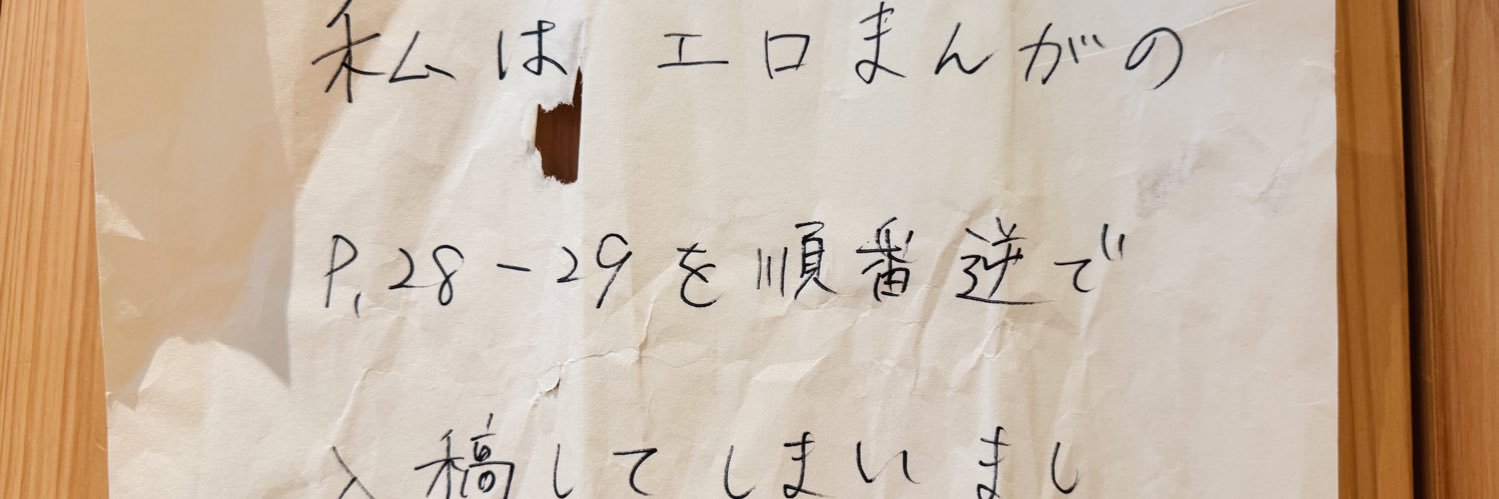 私は エロまんがの
P.28-29を順番逆で
入稿してしまいまし